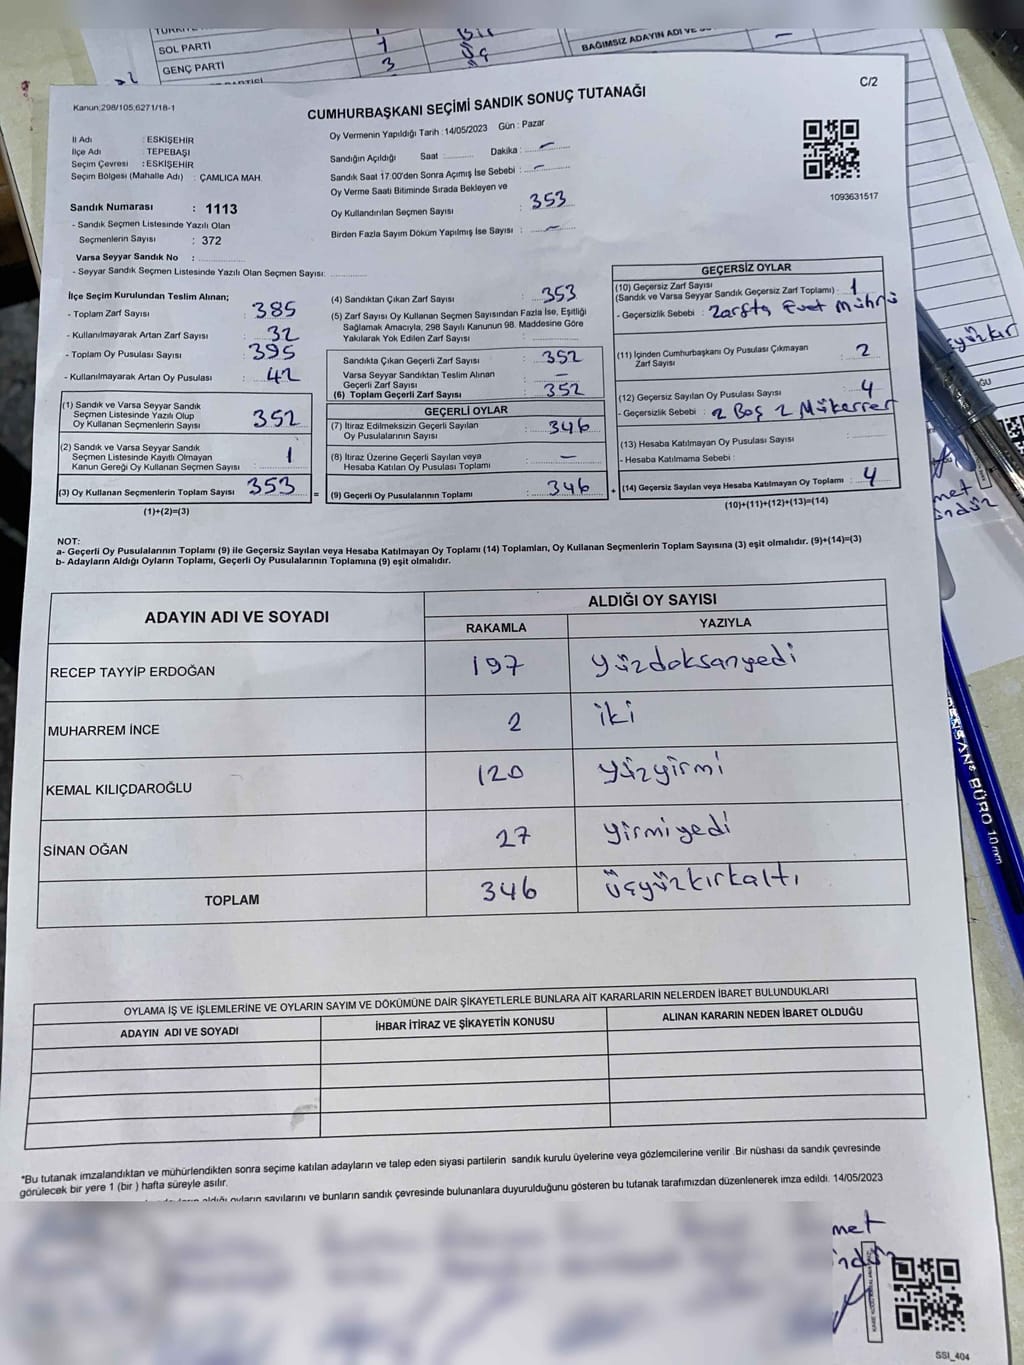 SOL PARTİ 1 Bir
GENÇ PARTİ 3 Üç
BAĞIMSIZ ADAYIN ADI VE
Kanun;298/105,6271/18-1
C/2
CUMHURBAŞKANI SEÇİMİ SANDIK SONUÇ TUTANAĞI
İl Adı : ESKİŞEHİR
İlçe Adı : TEPEBAŞI
Seçim Çevresi : ESKİŞEHİR
Seçim Bölgesi (Mahalle Adı) : ÇAMLICA MAH.
Sandık Numarası : 1113
- Sandık Seçmen Listesinde Yazılı Olan
Seçmenlerin Sayısı : 372
Varsa Seyyar Sandık No :
- Seyyar Sandık Seçmen Listesinde Yazılı Olan Seçmen Sayısı:
Oy Vermenin Yapıldığı Tarih : 14/05/2023 Gün : Pazar
Sandığın Açıldığı Saat : Dakika : —
Sandık Saat 17:00'den Sonra Açımış İse Sebebi : —
Oy Verme Saati Bitiminde Sırada Bekleyen ve
Oy Kullandırılan Seçmen Sayısı : 353
Birden Fazla Sayım Döküm Yapılmış İse Sayısı : —
1093631517
İlçe Seçim Kurulundan Teslim Alınan;
- Toplam Zarf Sayısı : 385
- Kullanılmayarak Artan Zarf Sayısı : 32
- Toplam Oy Pusulası Sayısı : 395
- Kullanılmayarak Artan Oy Pusulası : 42
(1) Sandık ve Varsa Seyyar Sandık
Seçmen Listesinde Yazılı Olup
Oy Kullanan Seçmenlerin Sayısı : 352
(2) Sandık ve Varsa Seyyar Sandık
Seçmen Listesinde Kayıtlı Olmayan
Kanun Gereği Oy Kullanan Seçmen Sayısı : 1
(3) Oy Kullanan Seçmenlerin Toplam Sayısı : 353
(1)+(2)=(3)
(4) Sandıktan Çıkan Zarf Sayısı : 353
(5) Zarf Sayısı Oy Kullanan Seçmen Sayısından Fazla İse, Eşitliği
Sağlamak Amacıyla, 298 Sayılı Kanunun 98. Maddesine Göre
Yakılarak Yok Edilen Zarf Sayısı :
Sandıkta Çıkan Geçerli Zarf Sayısı : 352
Varsa Seyyar Sandıktan Teslim Alınan
Geçerli Zarf Sayısı : —
(6) Toplam Geçerli Zarf Sayısı : 352
GEÇERLİ OYLAR
(7) İtiraz Edilmeksizin Geçerli Sayılan
Oy Pusulalarının Sayısı : 346
(8) İtiraz Üzerine Geçerli Sayılan veya
Hesaba Katılan Oy Pusulası Toplamı : —
= (9) Geçerli Oy Pusulalarının Toplamı : 346
GEÇERSİZ OYLAR
(10) Geçersiz Zarf Sayısı
(Sandık ve Varsa Seyyar Sandık Geçersiz Zarf Toplamı) : 1
- Geçersizlik Sebebi : Zarfta Evet Mührü
(11) İçinden Cumhurbaşkanı Oy Pusulası Çıkmayan
Zarf Sayısı : 2
(12) Geçersiz Sayılan Oy Pusulası Sayısı : 4
- Geçersizlik Sebebi : 2 Boş 2 Mükerrer
(13) Hesaba Katılmayan Oy Pusulası Sayısı :
- Hesaba Katılmama Sebebi :
+ (14) Geçersiz Sayılan veya Hesaba Katılmayan Oy Toplamı : 4
(10)+(11)+(12)+(13)=(14)
NOT:
a- Geçerli Oy Pusulalarının Toplamı (9) ile Geçersiz Sayılan veya Hesaba Katılmayan Oy Toplamı (14) Toplamları, Oy Kullanan Seçmenlerin Toplam Sayısına (3) eşit olmalıdır. (9)+(14)=(3)
b- Adayların Aldığı Oyların Toplamı, Geçerli Oy Pusulalarının Toplamına (9) eşit olmalıdır.
ADAYIN ADI VE SOYADI ALDIĞI OY SAYISI
RAKAMLA YAZIYLA
RECEP TAYYİP ERDOĞAN 197 yüzdoksanyedi
MUHARREM İNCE 2 iki
KEMAL KILIÇDAROĞLU 120 yüzyirmi
SİNAN OĞAN 27 yirmiyedi
TOPLAM 346 üçyüzkırkaltı
OYLAMA İŞ VE İŞLEMLERİNE VE OYLARIN SAYIM VE DÖKÜMÜNE DAİR ŞİKAYETLERLE BUNLARA AİT KARARLARIN NELERDEN İBARET BULUNDUKLARI
ADAYIN ADI VE SOYADI İHBAR İTİRAZ VE ŞİKAYETİN KONUSU ALINAN KARARIN NEDEN İBARET OLDUĞU
*Bu tutanak imzalandıktan ve mühürlendikten sonra seçime katılan adayların ve talep eden siyasi partilerin sandık kurulu üyelerine veya gözlemcilerine verilir .Bir nüshası da sandık çevresinde
görülecek bir yere 1 (bir ) hafta süreyle asılır.
oyların sayılarını ve bunların sandık çevresinde bulunanlara duyurulduğunu gösteren bu tutanak tarafımızdan düzenlenerek imza edildi. 14/05/2023
met
SSI_404
BÜRO 10 mm